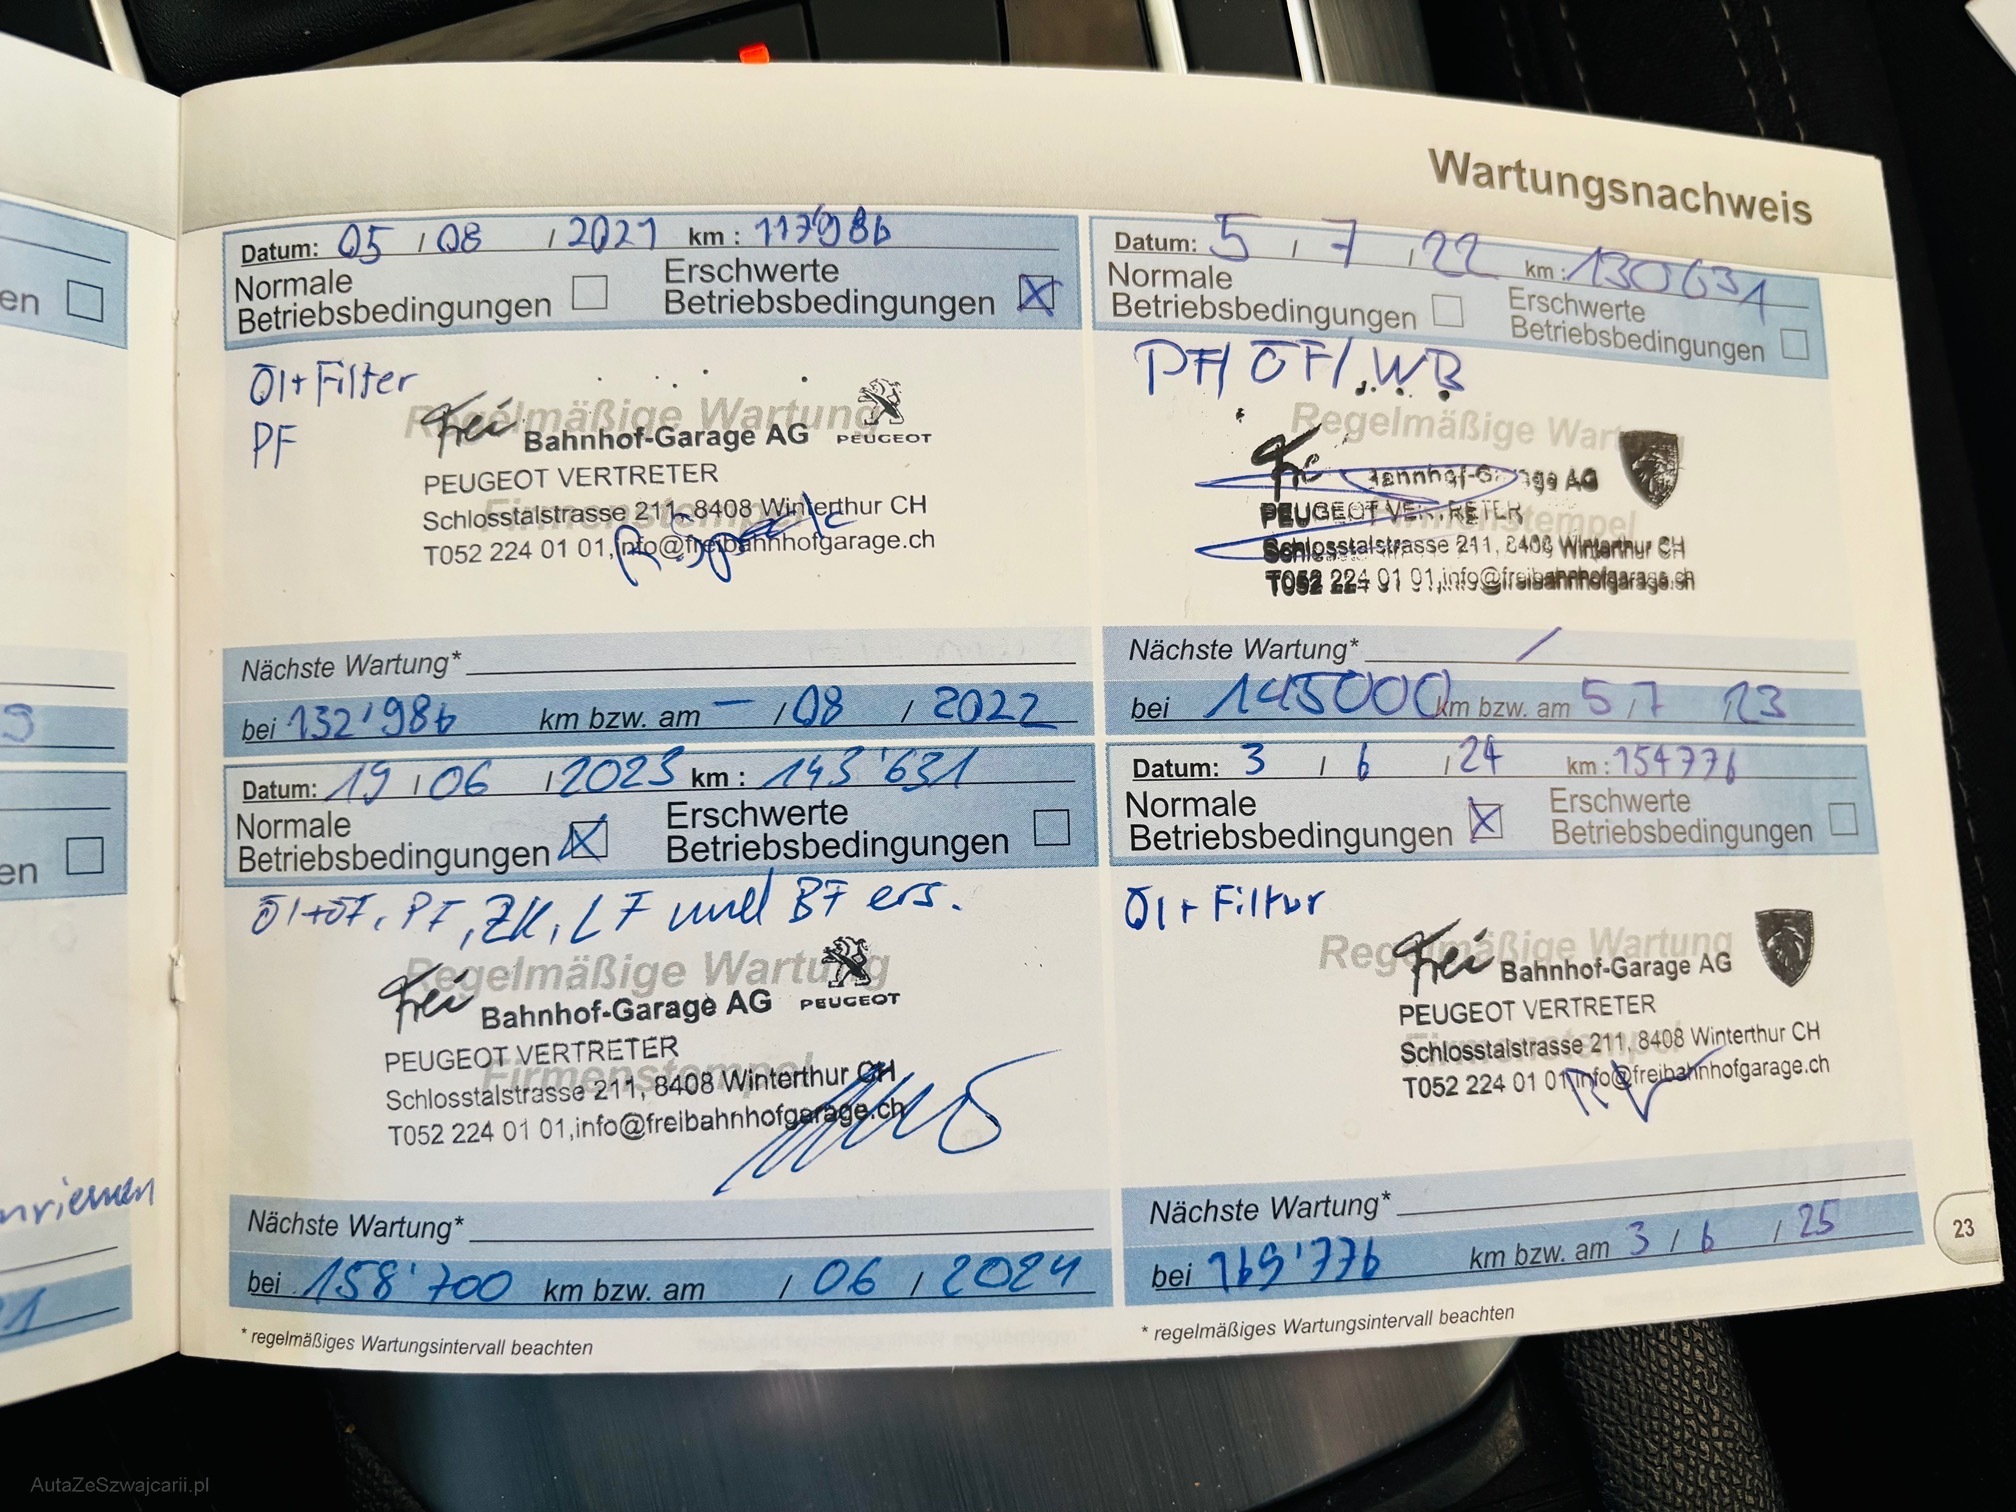 Wartungsnachweis
Datum: 05 / 08 / 2021 km : 117'986
Normale
Betriebsbedingungen
Erschwerte
Betriebsbedingungen X
Öl+Filter
PF
Regelmäßige Wartung
Frei Bahnhof-Garage AG PEUGEOT
PEUGEOT VERTRETER
Firmenstempel
Schlosstalstrasse 211, 8408 Winterthur CH
T052 224 01 01,info@freibahnhofgarage.ch
Nächste Wartung*
bei 132'986 km bzw. am – / 08 / 2022
Datum: 5 / 7 / 22 km : 130631
Normale
Betriebsbedingungen
Erschwerte
Betriebsbedingungen
PF/ ÖF/ WB
Regelmäßige Wartung
Frei Bahnhof-Garage AG
PEUGEOT VERTRETER
Firmenstempel
Schlosstalstrasse 211, 8408 Winterthur CH
T052 224 01 01,info@freibahnhofgarage.ch
Nächste Wartung* /
bei 145000 km bzw. am 5 / 7 23
Datum: 19 / 06 / 2023 km : 143'631
Normale
Betriebsbedingungen X
Erschwerte
Betriebsbedingungen
Öl+ÖF, PF, ZK, LF und BF ers.
Regelmäßige Wartung
Frei Bahnhof-Garage AG PEUGEOT
PEUGEOT VERTRETER
Firmenstempel
Schlosstalstrasse 211, 8408 Winterthur CH
T052 224 01 01,info@freibahnhofgarage.ch
Nächste Wartung*
bei 158'700 km bzw. am / 06 / 2024
* regelmäßiges Wartungsintervall beachten
Datum: 3 / 6 / 24 km : 154776
Normale
Betriebsbedingungen X
Erschwerte
Betriebsbedingungen
Öl + Filter
Regelmäßige Wartung
Frei Bahnhof-Garage AG
PEUGEOT VERTRETER
Firmenstempel
Schlosstalstrasse 211, 8408 Winterthur CH
T052 224 01 01,info@freibahnhofgarage.ch
Nächste Wartung*
bei 169'776 km bzw. am 3 / 6 / 25
* regelmäßiges Wartungsintervall beachten
23
en
en
nriemen
AutaZeSzwajcarii.pl